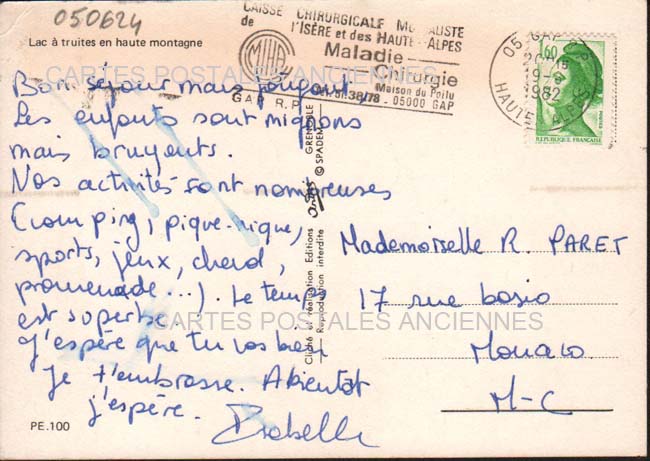 050624
Lac à truites en haute montagne
CAISSE CHIRURGICALE MUTUALISTE
de l'ISÈRE et des HAUTES-ALPES
Maladie
Chirurgie
Maison du Poilu
38/78 - 05000 GAP
GAP R.P.
05 GAP R.P.
19-8
1982
HAUTES ALPES
1,60
REPUBLIQUE FRANÇAISE
CARTES POSTALES ANCIENNES
Bon séjour mais fatigant,
Les enfants sont mignons
mais bruyants.
Nos activités sont nombreuses
(camping, pique-nique,
sports, jeux, cheval,
promenade...). Le temps
est superbe.
J'espère que tu vas bien
Je t'embrasse. A bientôt
j'espère. Isabelle
Cliché et réalisation Editions
Reproduction interdite
GRENOBLE
© SPADEM
Mademoiselle R. PARET
17 rue bosio
Monaco
M-C
CARTES POSTALES ANCIENNES
PE.100